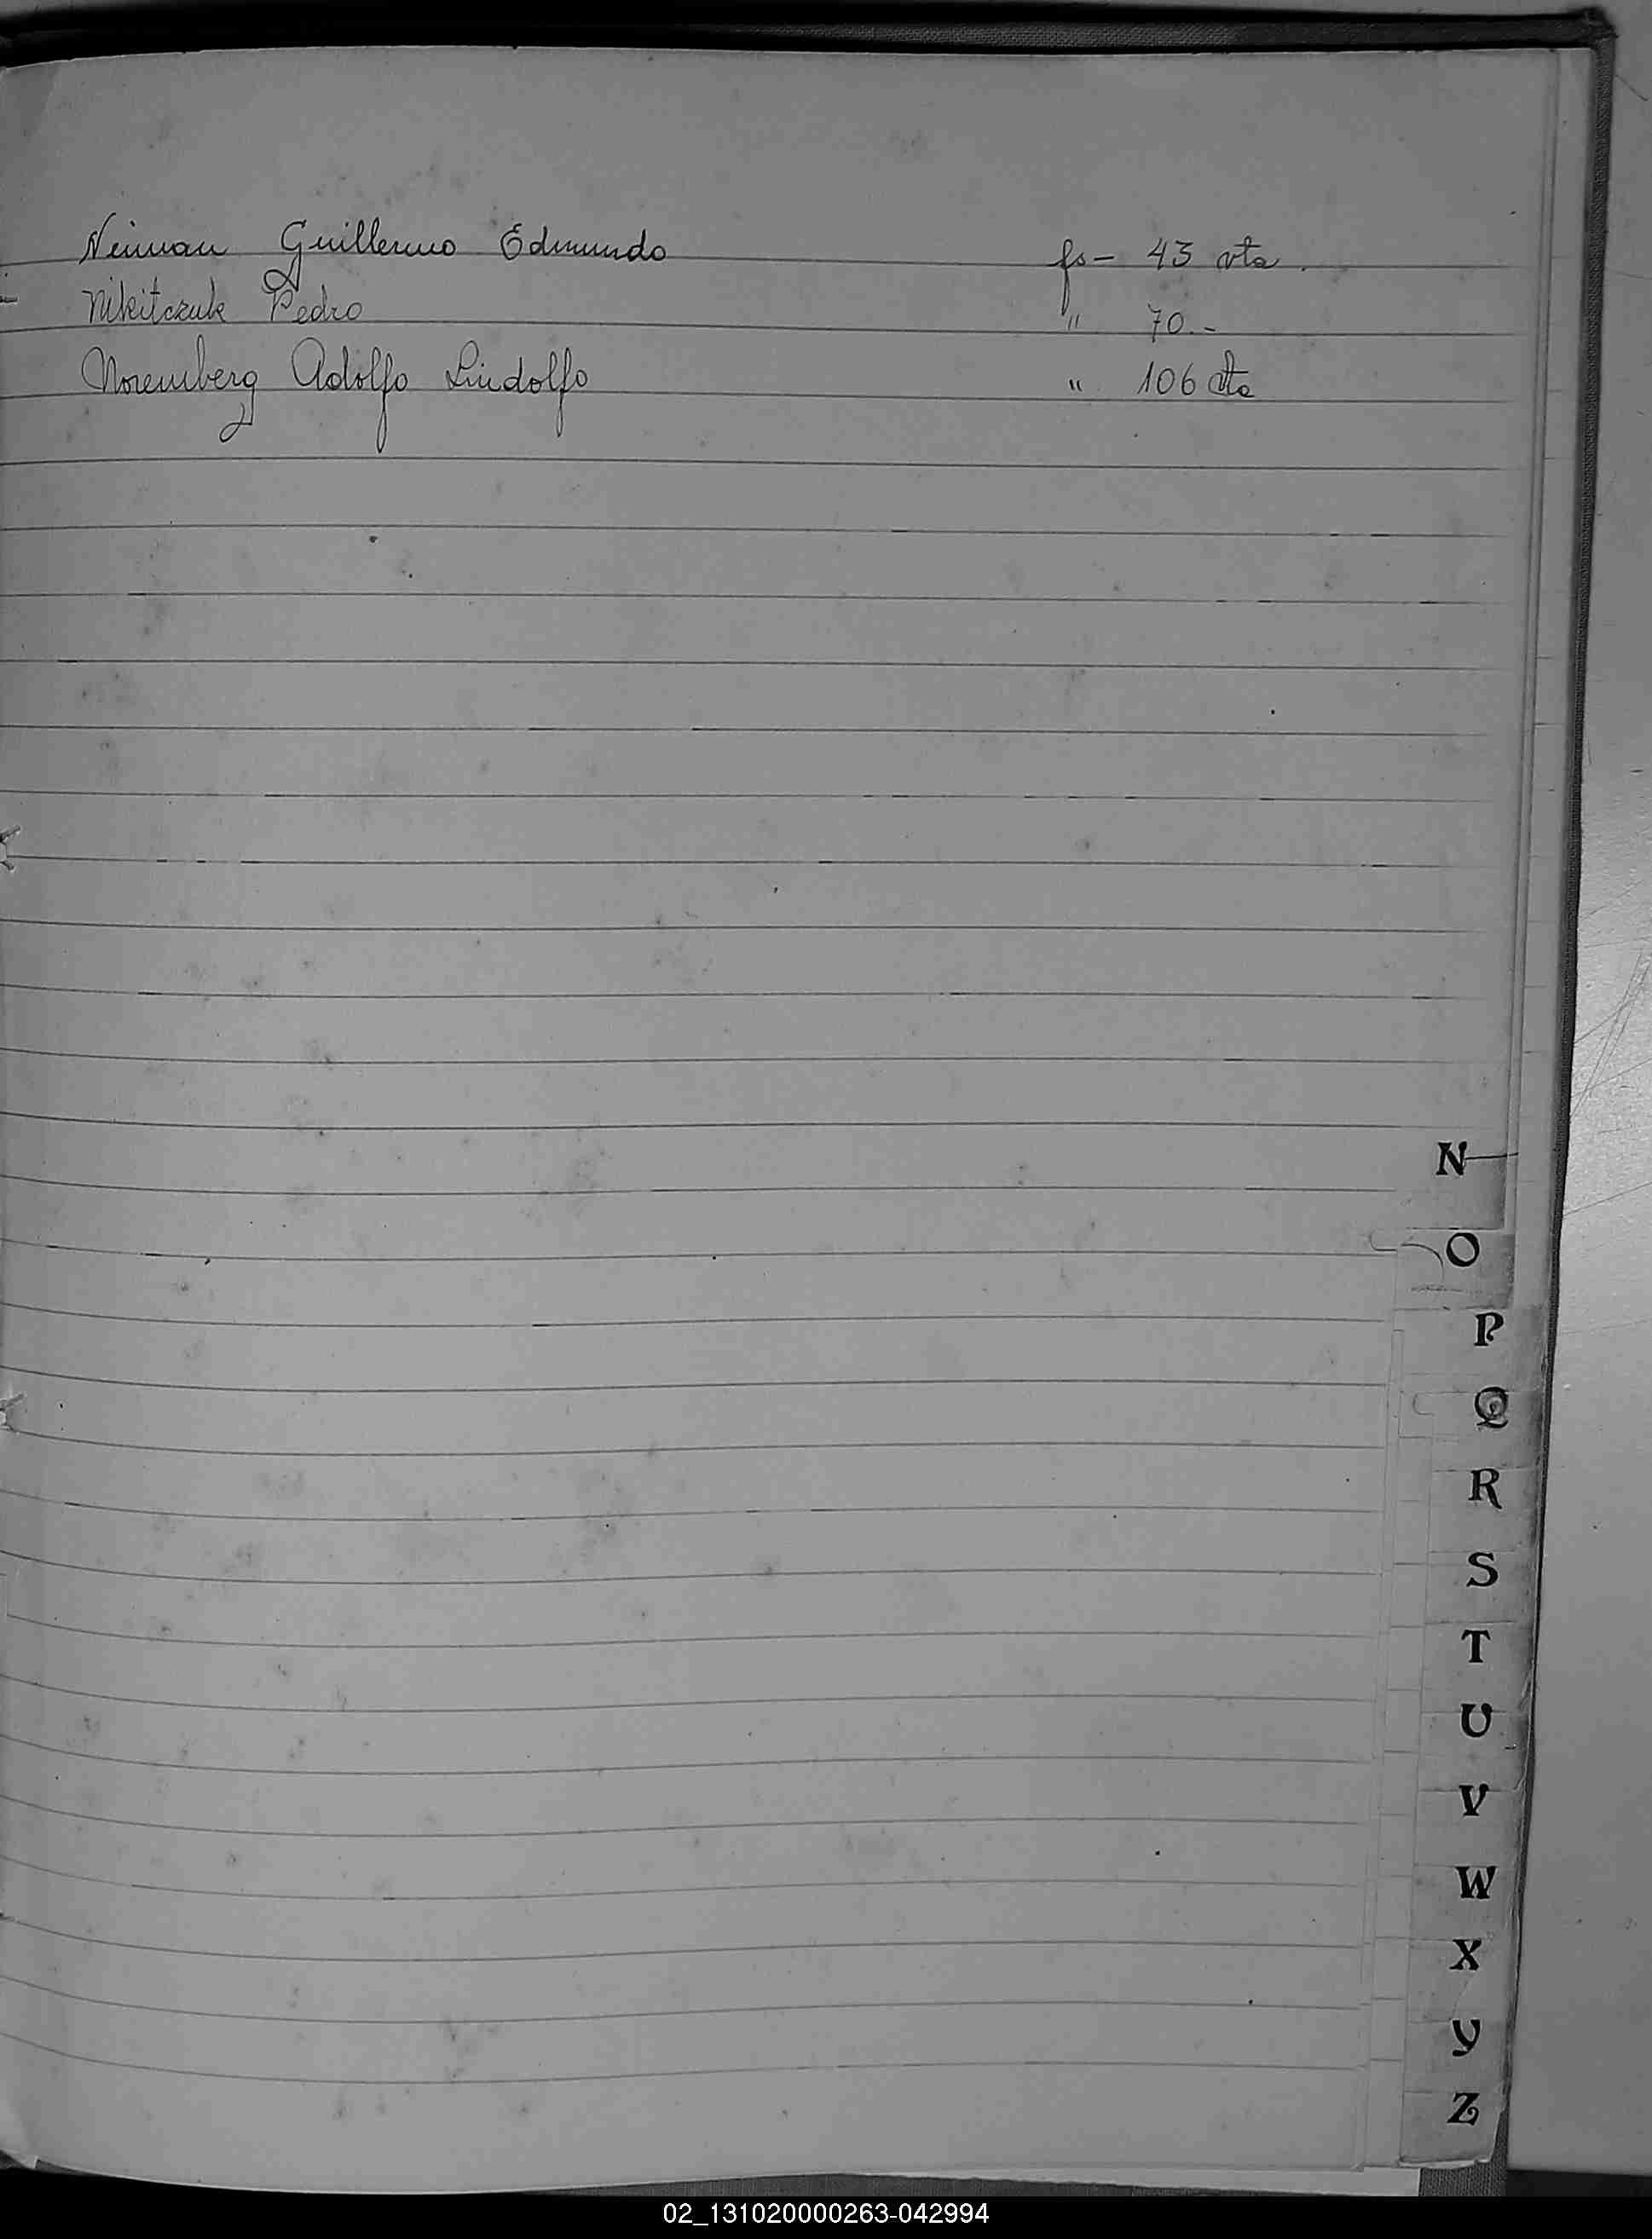 Neiman Guillermo Edmundo fs- 43 vta.
Nikitczuk Pedro " 70.-
Noremberg Adolfo Lindolfo " 106 vta
N
O
P
Q
R
S
T
U
V
W
X
Y
Z
02_131020000263-042994